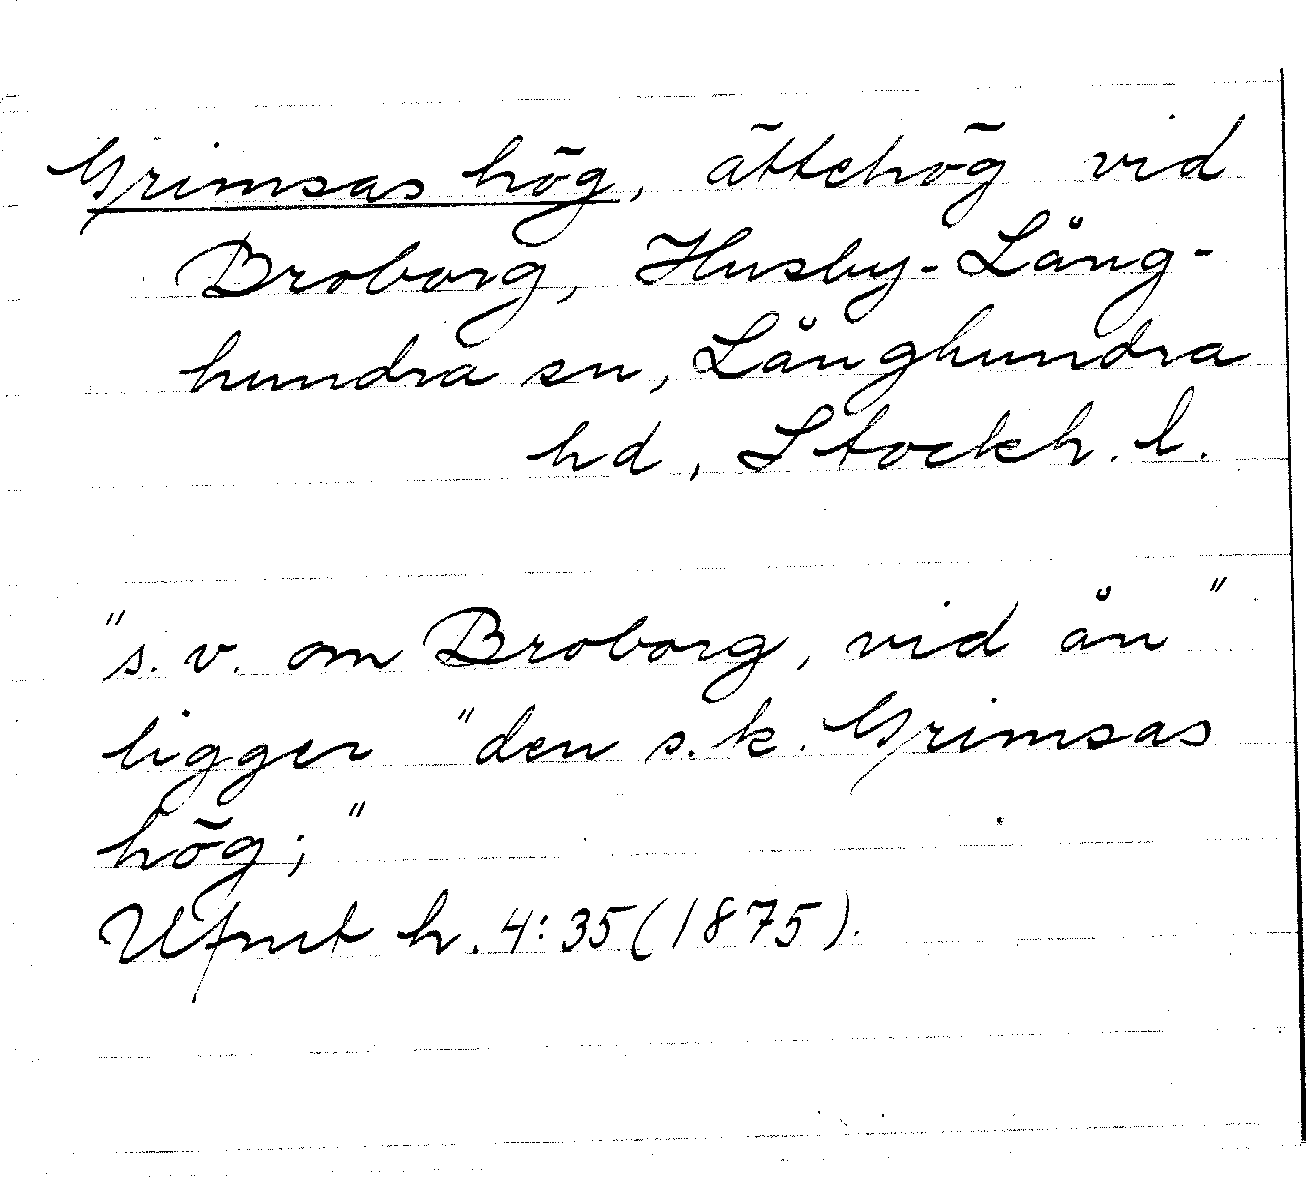 Grimsas hög, ättehög vid
Broborg, Husby-Lång-
hundra sn, Långhundra
hd, Stockh. l.
"s. v. om Broborg, vid ån"
ligger "den s. k. Grimsas
hög;"
Ufmt h. 4:35 (1875).